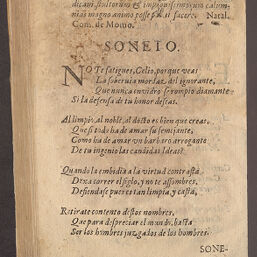 dicam, stultorum & impiissimorum calum-
nias magno animo posse facere. Natal.
Com. de Momo.
SONETO.
NO te fatigues, Celio, porque veas
La soberuia mordaz del ignorante,
Que nunca embidia se rompio diamante
Si la defensa de tu honor deseas.
Al limpio, al noble, al docto es bien que creas,
Que si todo ha de amar su semejante,
Como ha de amar un barbaro arrogante
De tu ingenio las candidas Ideas?
Quando la embidia a la virtud contrasta
Dexa correr el siglo, y no te assombres,
Defiendase pues es tan limpia y casta,
Retirate contento destos nombres,
Que para despreciar el mundo, basta
Ser los hombres juzgados de los hombres.
SONE-